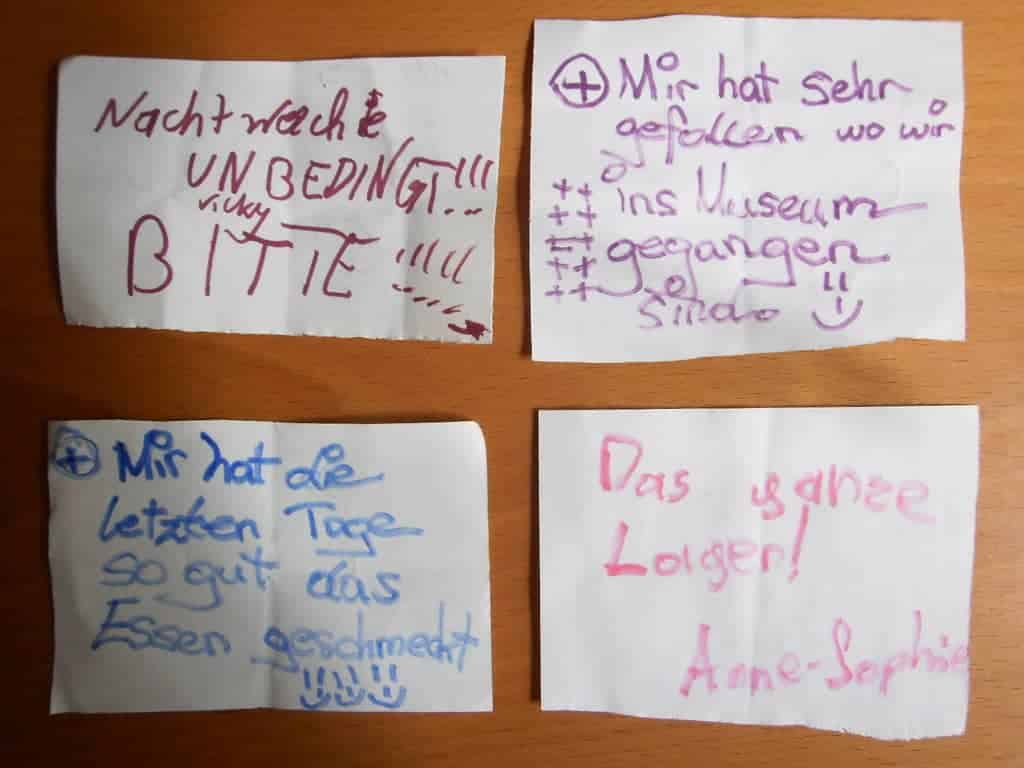 Nachtwache
UNBEDINGT!!!
Vicky
BITTE !!!!!
⊕ Mir hat sehr
gefallen wo wir
++ ins Museum
++
++ gegangen
++
++
++ Sindo
⊕ Mir hat die
letzten Tage
so gut das
Essen geschmeckt
Das ganze
Lager!
Anne-Sophie